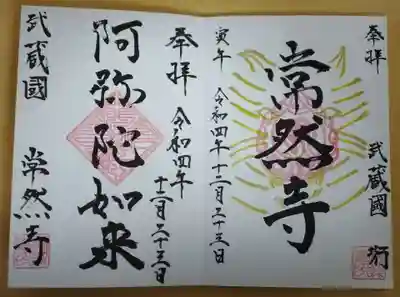 奉拝
武蔵國
常然寺
寅年
令和四年十二月二十三日
奉拝
令和四年
十二月二十三日
阿弥陀如来
武蔵國
常然寺